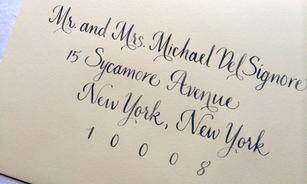 Mr. and Mrs. Michael DelSignore
15 Sycamore Avenue
New York, New York
10008